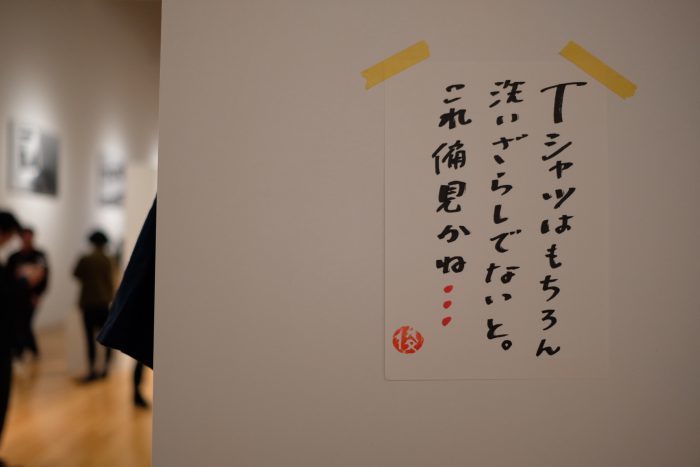 Tシャツはもちろん
洗いざらしでないと。
これ偏見かね・・・
俊